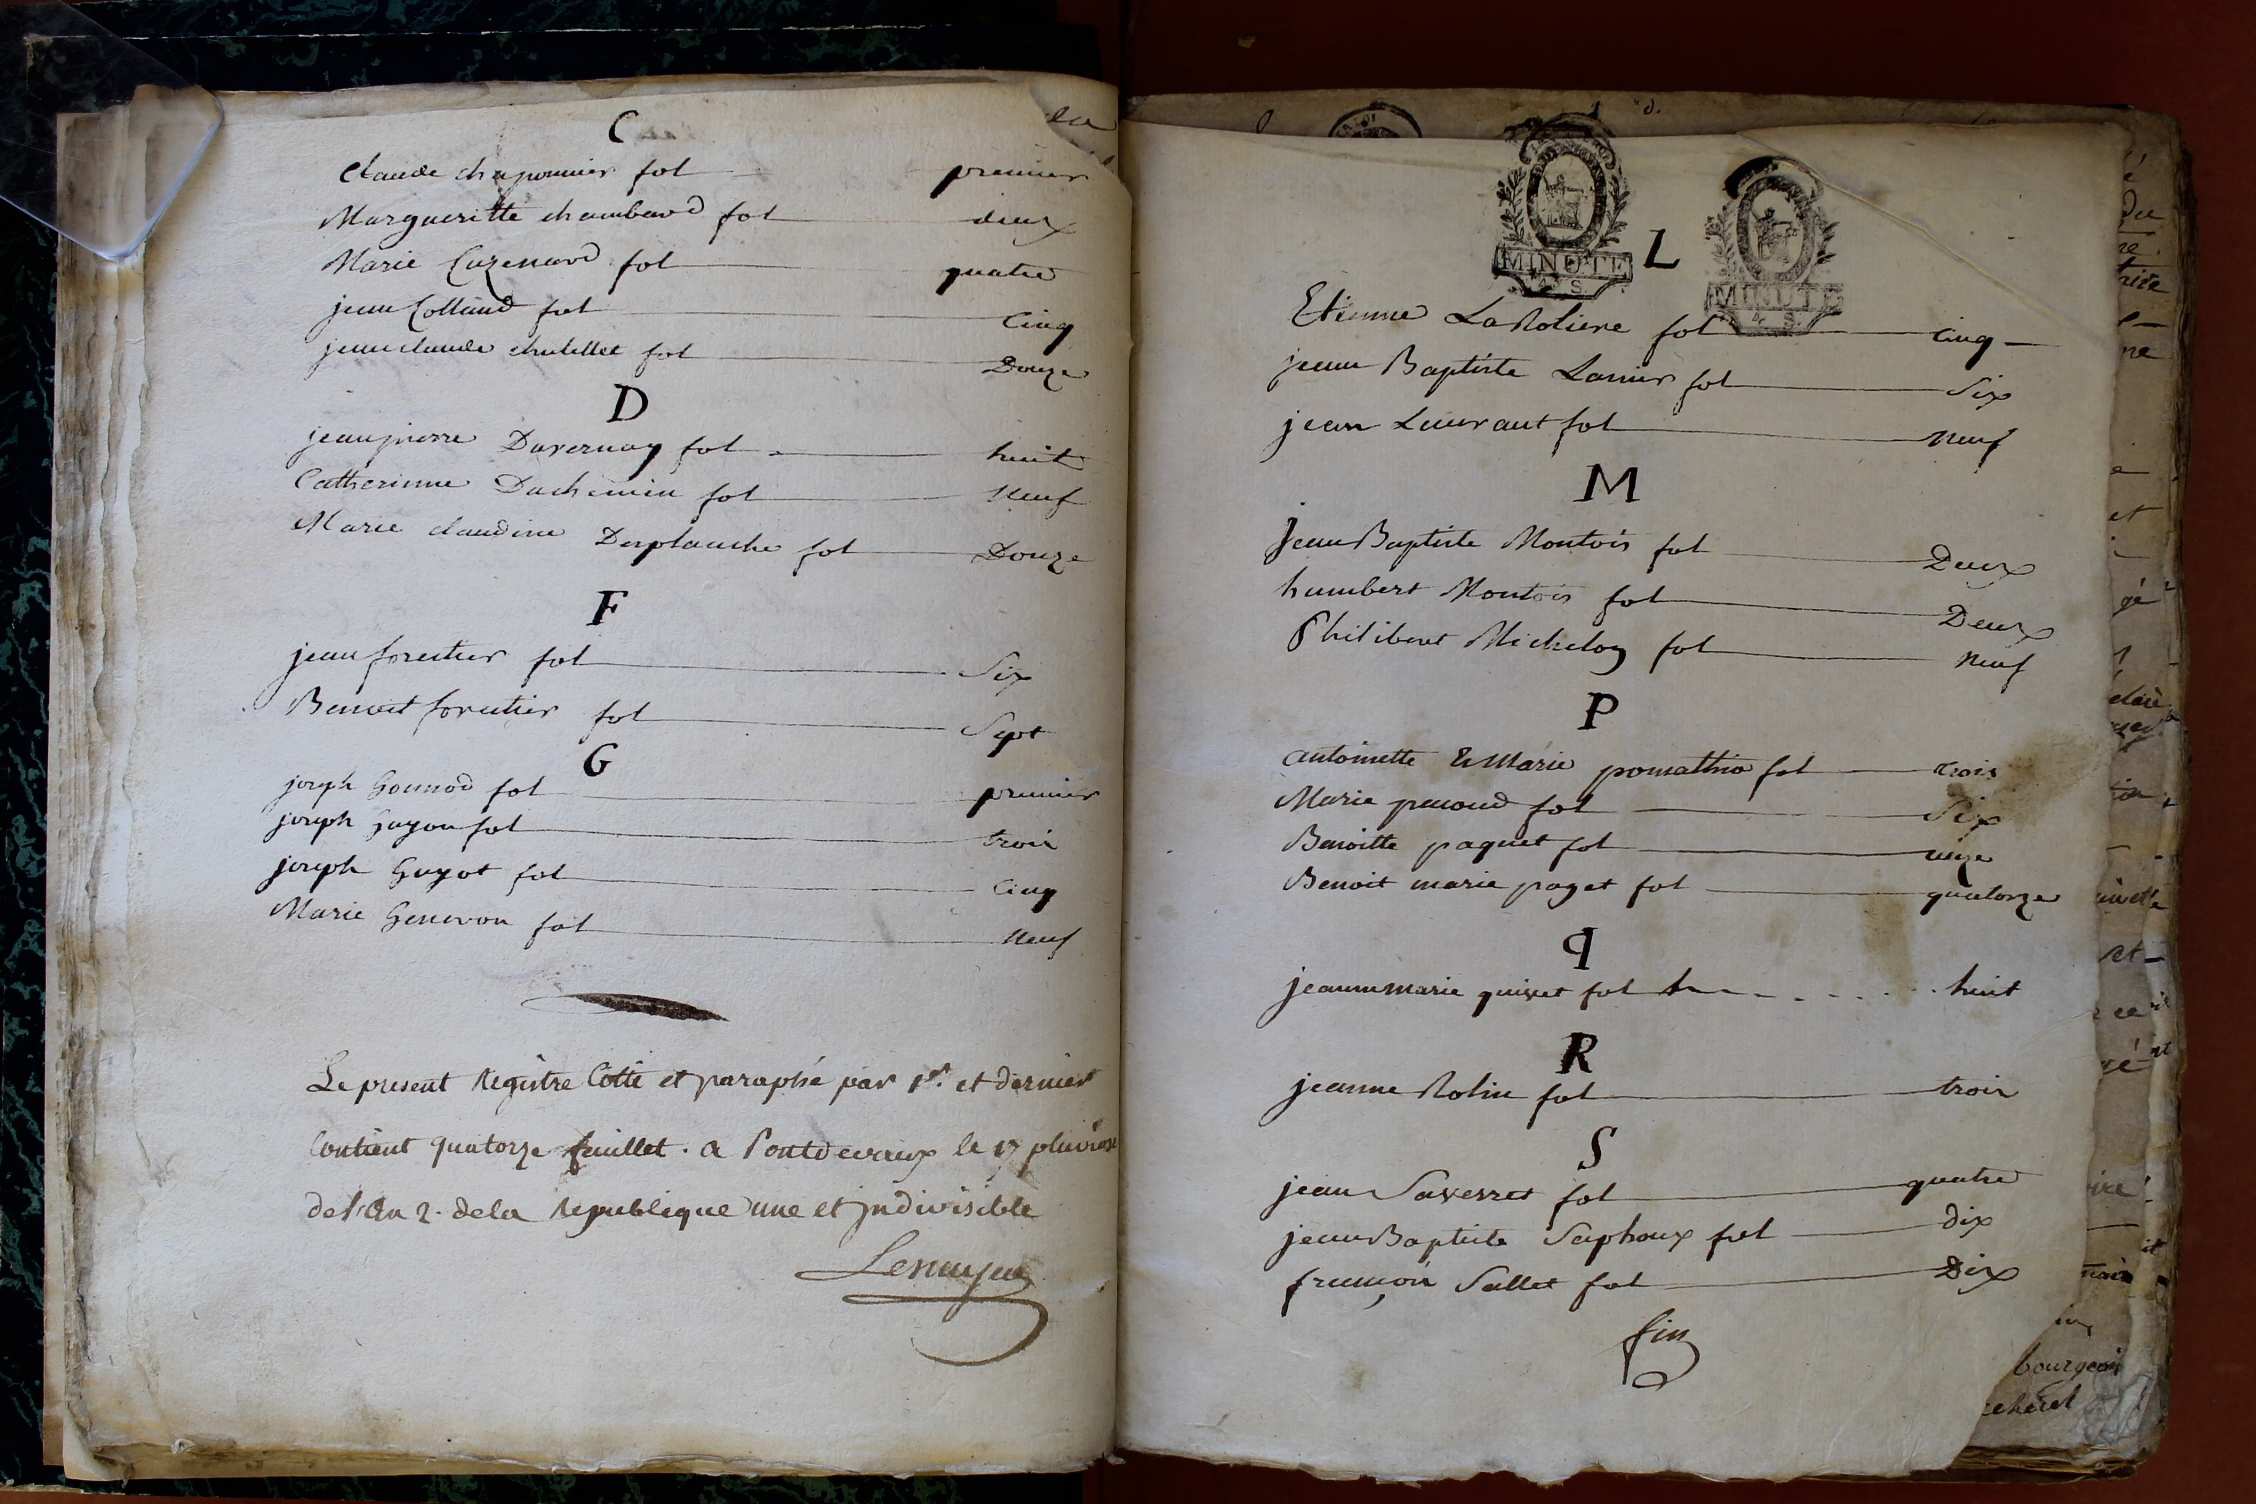 C
Claude chaponnier fol premier
Margueritte chambard fol deux
Marie Cazenard fol quatre
jean Colland fol Cinq
jean claude chatillet fol Douze
D
jean pierre Duvernay fol huit
Catherinne Duchemin fol Neuf
Marie claudine Desplanche fol Douze
F
jean forestier fol Six
Benoit forestier fol Sept
G
joseph Gonnod fol premier
joseph Guyon fol trois
joseph Guyot fol Cinq
Marie Genevon fol Neuf
Le present Registre Cotté et paraphé par 1er. et dernier
Contient quatorze feuillet. a Pontdevaux le 17 pluviose
de l'an 2. de la Republique une et jndivisible
MINUTE
4 S.
MINUTE
4 S.
L
Etienne LaRoliere fol Cinq
jean Baptiste Lanier fol Six
jean Laurant fol Neuf
M
jean Baptiste Montois fol Deux
humbert Montois fol Deux
Philibert Michelon fol Neuf
P
antoinette & Marie pomathio fol trois
Marie penoud fol Six
Benoitte paquet fol unze
Benoit marie paget fol quatorze
q
jeanne marie quivet fol huit
R
jeanne Rolin fol trois
S
jean Saverret fol quatre
jean Baptiste Saphoux fol dix
françois Sallet fol Dix
fin
bourgeois